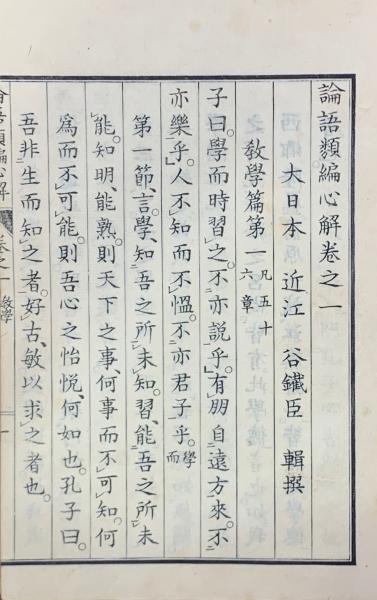 論語類編心解卷之一
大日本 近江 谷鐵臣 輯撰
敎學篇第一 凡五十六章
子曰。學而時習之。不亦説乎。有朋自遠方來。不
亦樂乎。人不知而不慍。不亦君子乎。學而
第一節、言學、知吾之所未知。習、能吾之所未
能。知明、能熟。則天下之事、何事而不可知。何
爲而不可能。則吾心之怡悦、何如也。孔子曰。
吾非生而知之者。好古、敏以求之者也。
論語類編心解 卷之一 敎學 一